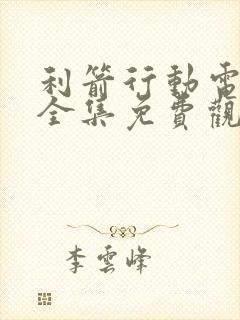 利箭行動電
全集免費觀
李雲峰